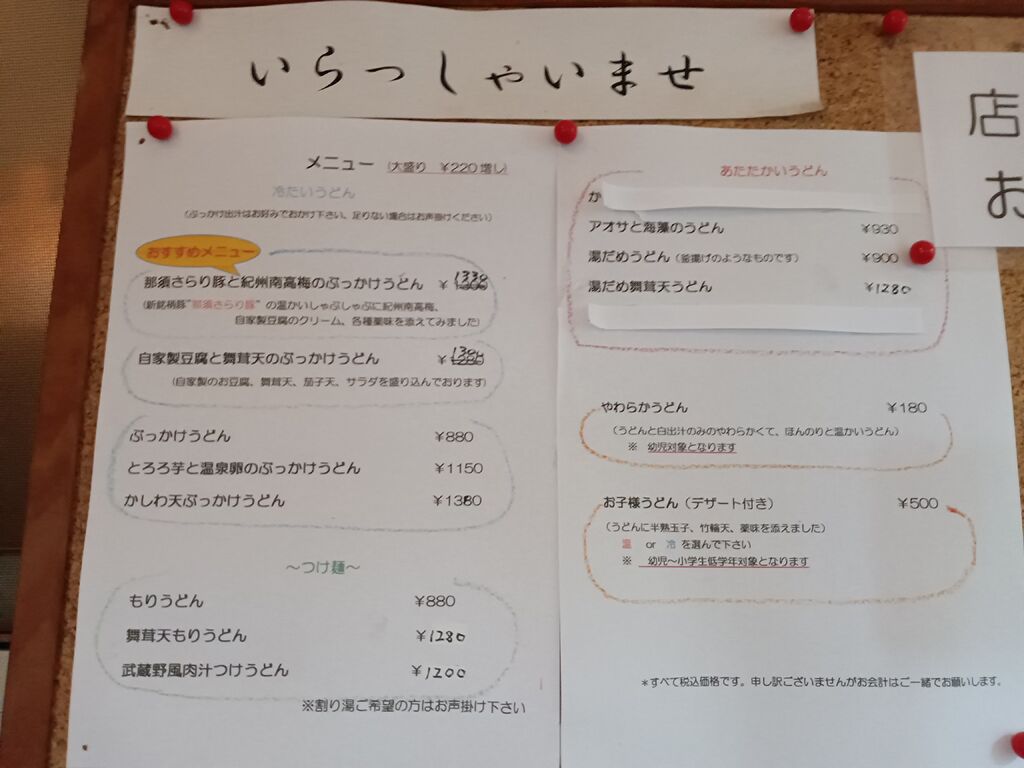 いらっしゃいませ
メニュー (大盛り ¥220増し)
冷たいうどん
(ぶっかけ出汁はお好みでおかけ下さい、足りない場合はお声掛けください)
おすすめメニュー
那須さらり豚と紀州南高梅のぶっかけうどん ¥1330
(新銘柄豚"那須さらり豚"の温かいしゃぶしゃぶに紀州南高梅、
自家製豆腐のクリーム、各種薬味を添えてみました)
自家製豆腐と舞茸天のぶっかけうどん ¥
(自家製のお豆腐、舞茸天、茄子天、サラダを盛り込んでおります)
ぶっかけうどん ¥880
とろろ芋と温泉卵のぶっかけうどん ¥1150
かしわ天ぶっかけうどん ¥1380
～つけ麺～
もりうどん ¥880
舞茸天もりうどん ¥1280
武蔵野風肉汁つけうどん ¥1200
※割り湯ご希望の方はお声掛け下さい
あたたかいうどん
か
アオサと海藻のうどん ¥930
湯だめうどん(釜揚げのようなものです) ¥900
湯だめ舞茸天うどん ¥1280
やわらかうどん ¥180
(うどんと白出汁のみのやわらかくて、ほんのりと温かいうどん)
※ 幼児対象となります
お子様うどん(デザート付き) ¥500
(うどんに半熟玉子、竹輪天、薬味を添えました)
温 or 冷 を選んで下さい
※ 幼児～小学生低学年対象となります
*すべて税込価格です。申し訳ございませんがお会計はご一緒でお願いします。
店
お